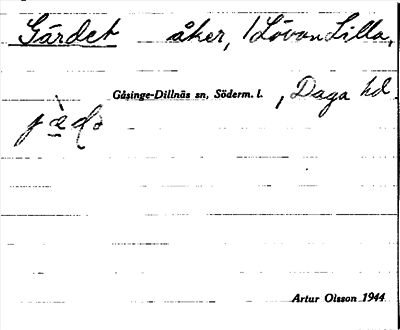 Gärdet åker, Lövan Lilla,
Gåsinge-Dillnäs sn, Söderm. l. , Daga hd.
Artur Olsson 1944